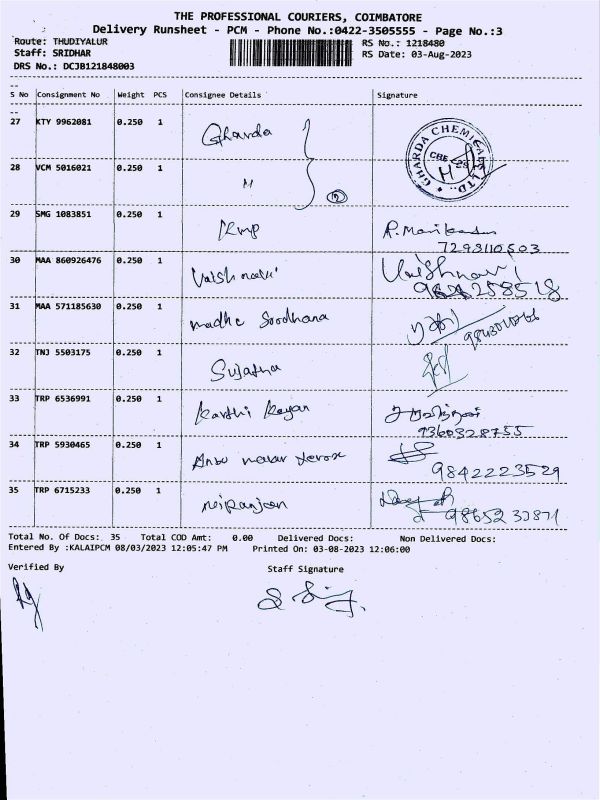 THE PROFESSIONAL COURIERS, COIMBATORE
Delivery Runsheet - PCM - Phone No.:0422-3505555 - Page No.:3
Route: THUDIYALUR
RS No.: 1218480
Staff: SRIDHAR
RS Date: 03-Aug-2023
DRS No.: DCJB121848003
S No Consignment No Weight PCS Consignee Details Signature
27 KTY 9962081 0.250 1 Gharda
GHARDA CHEMICALS LTD.
CBE
28 VCM 5016021 0.250 1 "
29 SMG 1083851 0.250 1 R. Manikandan
7293110603
30 MAA 860926476 0.250 1 Vaishnavi Vaishnavi
31 MAA 571185630 0.250 1 madhe Soodhana
32 TNJ 5503175 0.250 1 Sujatha
33 TRP 6536991 0.250 1 Karthi Keyan
9360328755
34 TRP 5930465 0.250 1 Anbu malar Xerox
9842223529
35 TRP 6715233 0.250 1 neiranjan
Total No. Of Docs: 35 Total COD Amt: 0.00 Delivered Docs: Non Delivered Docs:
Entered By :KALAIPCM 08/03/2023 12:05:47 PM Printed On: 03-08-2023 12:06:00
Verified By Staff Signature